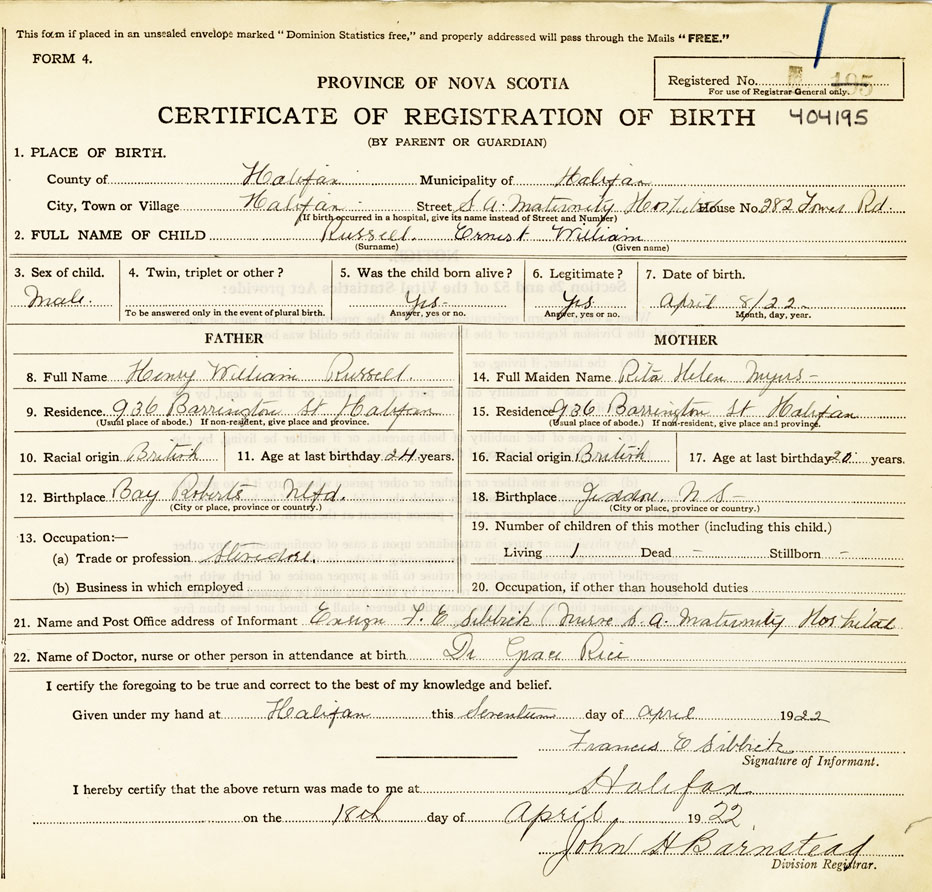 This form if placed in an unsealed envelope marked "Dominion Statistics free," and properly addressed will pass through the Mails "FREE."
FORM 4.
Registered No. 195
For use of Registrar General only.
PROVINCE OF NOVA SCOTIA
CERTIFICATE OF REGISTRATION OF BIRTH 404195
(BY PARENT OR GUARDIAN)
1. PLACE OF BIRTH.
County of Halifax Municipality of Halifax
City, Town or Village Halifax Street S. A. Maternity Hospital House No. 282 Tower Rd.
(If birth occurred in a hospital, give its name instead of Street and Number)
2. FULL NAME OF CHILD Russell. Ernest William
(Surname) (Given name)
3. Sex of child. 4. Twin, triplet or other? 5. Was the child born alive? 6. Legitimate? 7. Date of birth.
Male. Yes- Yes April 8/22-
To be answered only in the event of plural birth. Answer, yes or no. Answer, yes or no. Month, day, year.
FATHER MOTHER
8. Full Name Henry William Russell. 14. Full Maiden Name Rita Helen Myers-
9. Residence 936 Barrington St Halifax 15. Residence 936 Barrington St Halifax
(Usual place of abode.) If non-resident, give place and province. (Usual place of abode.) If non-resident, give place and province.
10. Racial origin British 11. Age at last birthday 24 years. 16. Racial origin British 17. Age at last birthday 20 years.
12. Birthplace Bay Roberts Nfld. 18. Birthplace Jeddore, N S-
(City or place, province or country.) (City or place, province or country.)
19. Number of children of this mother (including this child.)
13. Occupation:—
Living 1 Dead - Stillborn -
(a) Trade or profession Stevedore.
(b) Business in which employed 20. Occupation, if other than household duties
21. Name and Post Office address of Informant Ensign F. E Sibbick Nurse S. A. Maternity Hospital
22. Name of Doctor, nurse or other person in attendance at birth Dr Grace Rice
I certify the foregoing to be true and correct to the best of my knowledge and belief.
Given under my hand at Halifax this Seventeen day of April 1922
Francis E Sibbick
Signature of Informant.
I hereby certify that the above return was made to me at Halifax
on the 18th day of April 1922
John H Barnstead
Division Registrar.